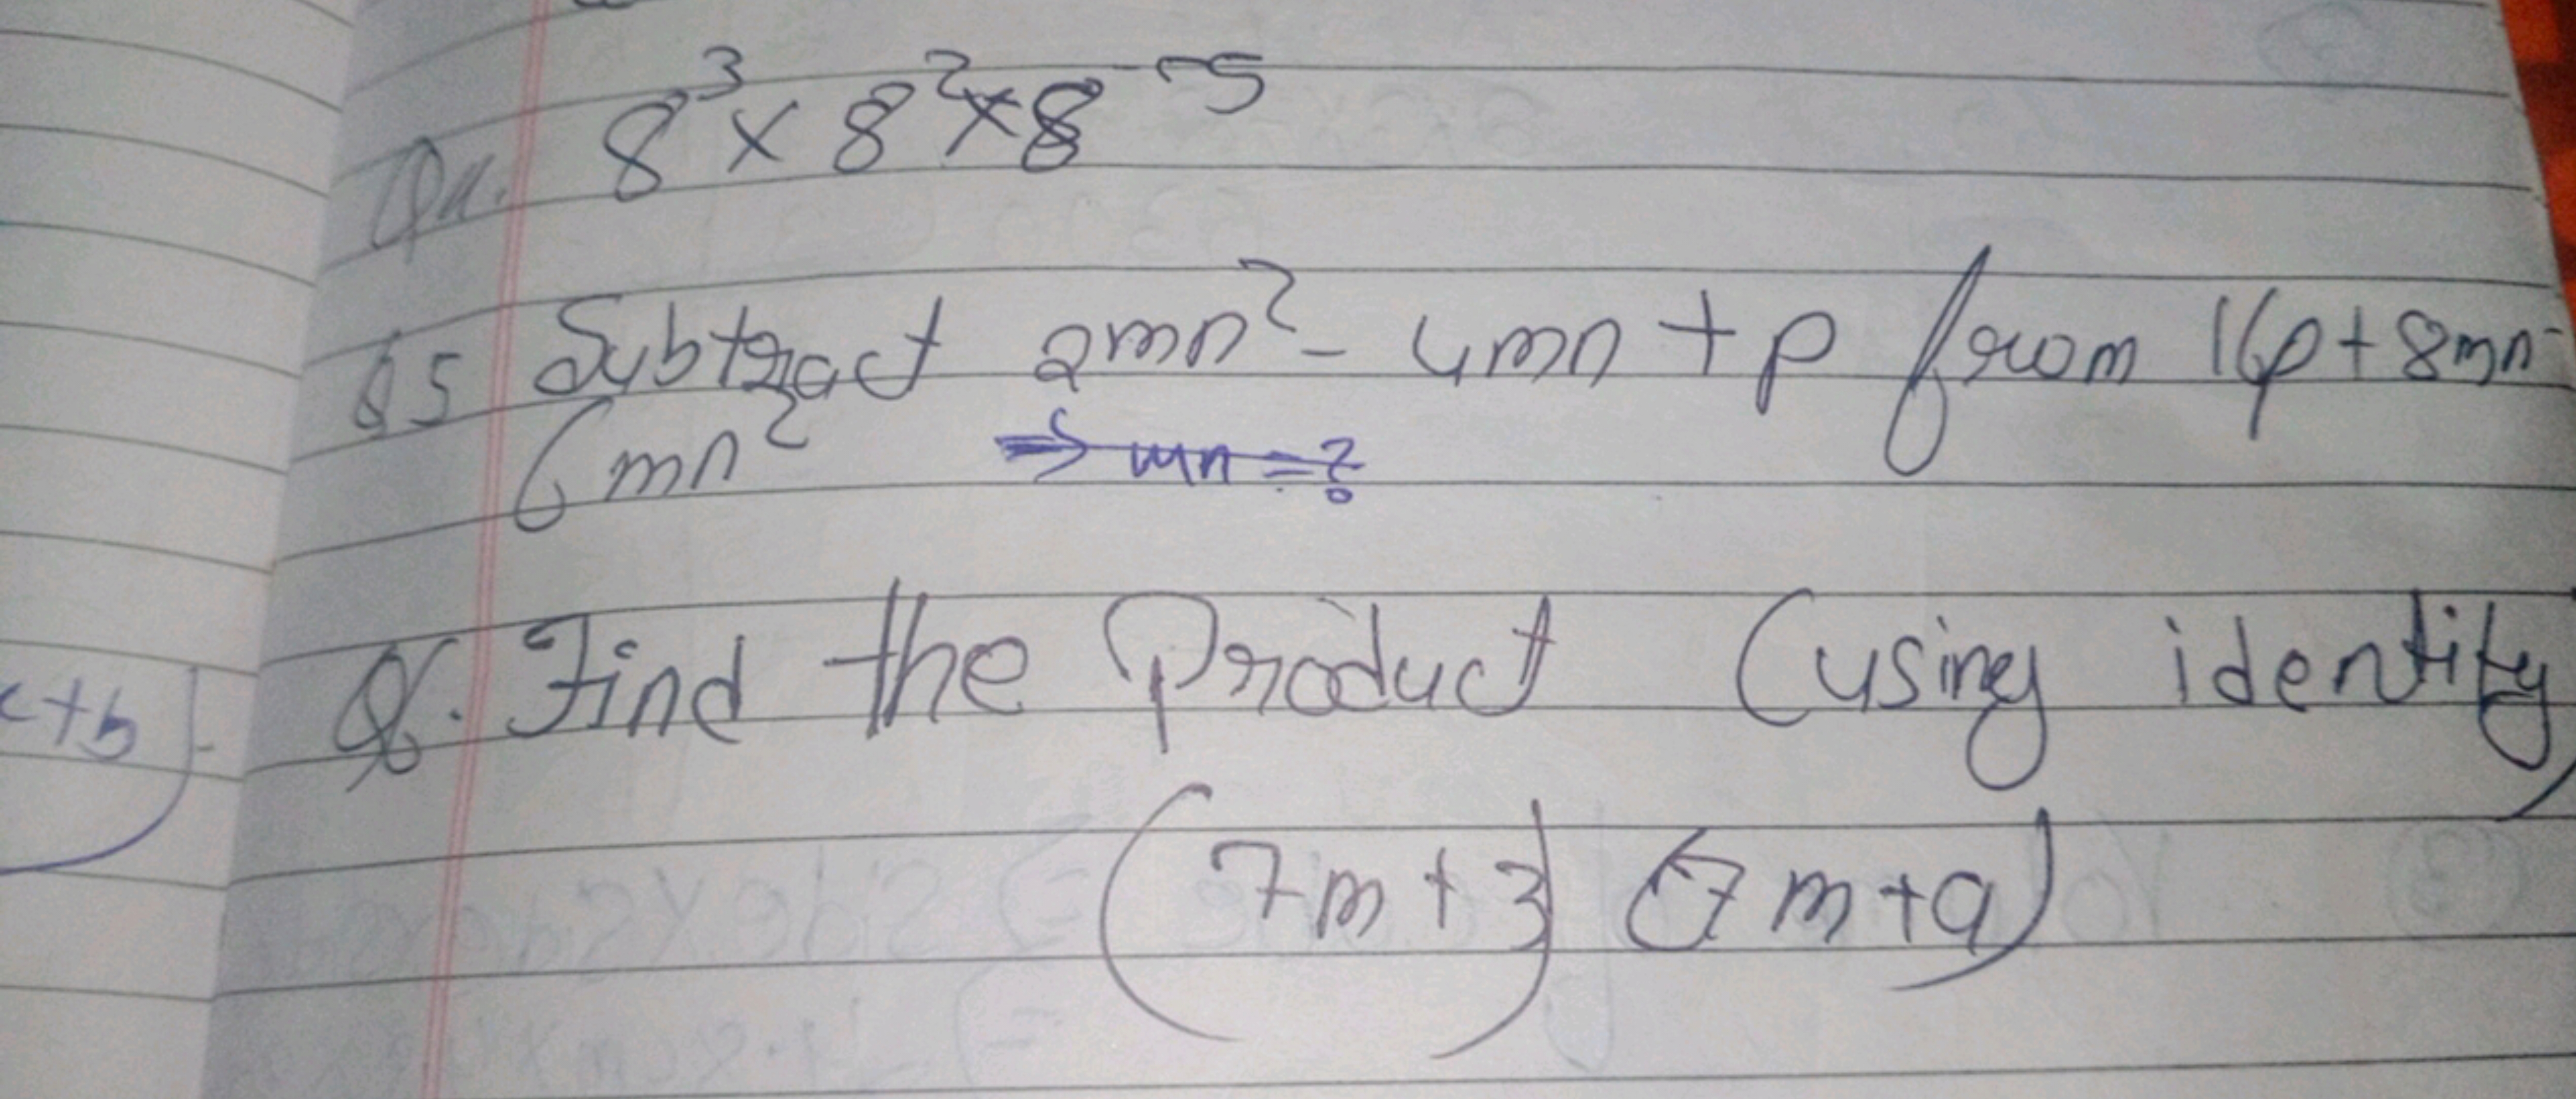 Q4. 8³ × 8² × 8⁻⁵
Q5 Subtract 2mn² - 4mn + p from 16p + 8mn -
6mn² ⇒ mn = ?
Q6. Find the Product (using identity)
(7m + 3) (7m + 9)
c+b)